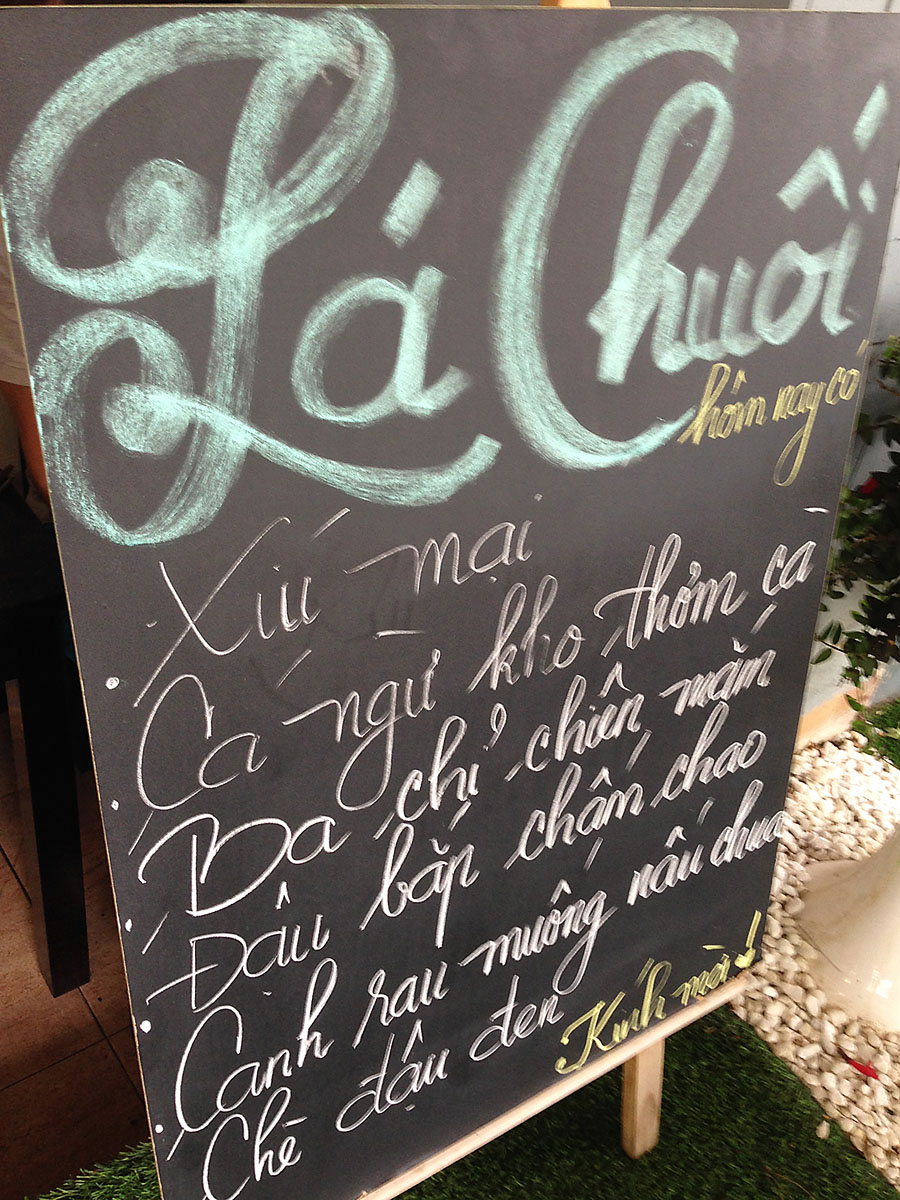 Lá Chuối
hôm nay có
Xíu mại
Cá ngừ kho thơm cà
Ba chỉ chiên mắm
Đậu bắp chấm chao
Canh rau muống nấu chua
Chè đậu đen
Kính mời!